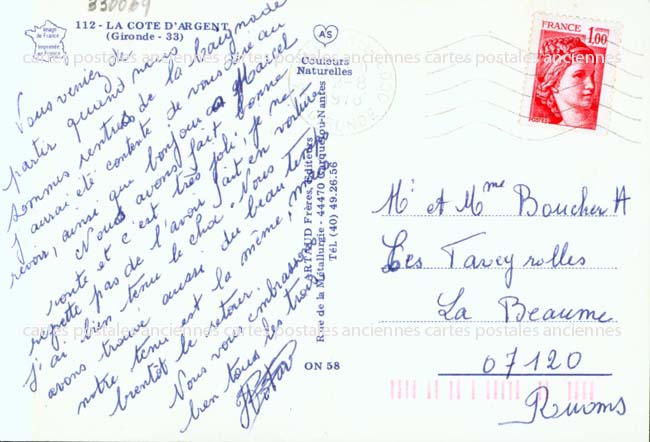 330069
112 - LA COTE D'ARGENT
(Gironde - 33)
Image de France
Imprimée en France
AS
Couleurs
Naturelles
Vous veniez de
partir quand nous
sommes rentrés de la baignade
j'aurai été contente de vous dire au
revoir, ainsi que bonjour à Marcel
Nous avons fait bonne
route et c'est très joli, je ne
regrette pas de l'avoir fait en voiture
j'ai bien tenu le choc. Nous
avons trouvé aussi du beau temps
notre tenu est la même, mais
bientôt le retour.
Nous vous embrassons
bien tous les trois
ARTAUD Frères, Éditeurs
Rue de la Métallurgie - 44470 Carquefou-Nantes
Tél. (40) 49.26.56
ON 58
FRANCE
1,00
POSTES
1978
GIRONDE
Mr et Mme Boucher A
Les Taveyrolles
La Beaume
07120
Ruoms
cartes postales anciennes cartes postales anciennes cartes postales anciennes cartes postales anciennes